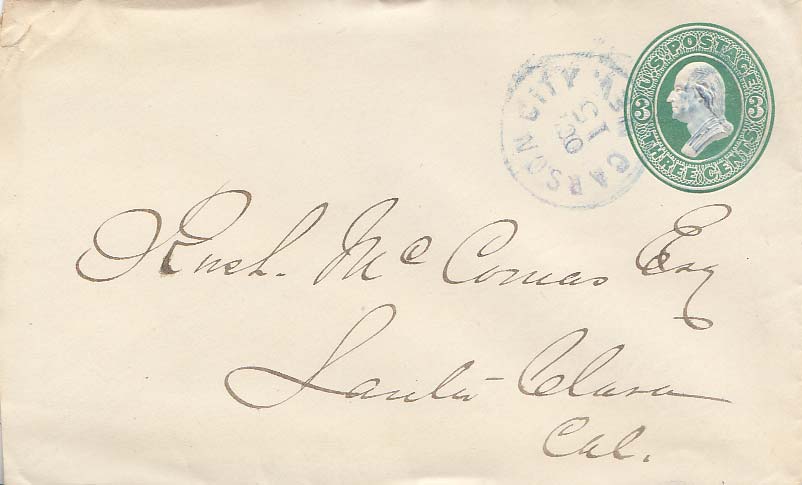 U.S. POSTAGE
3 3
THREE CENTS
CARSON CITY NEV.
OCT
15
Rush. Mc Comas Esq
Santa Clara
Cal.